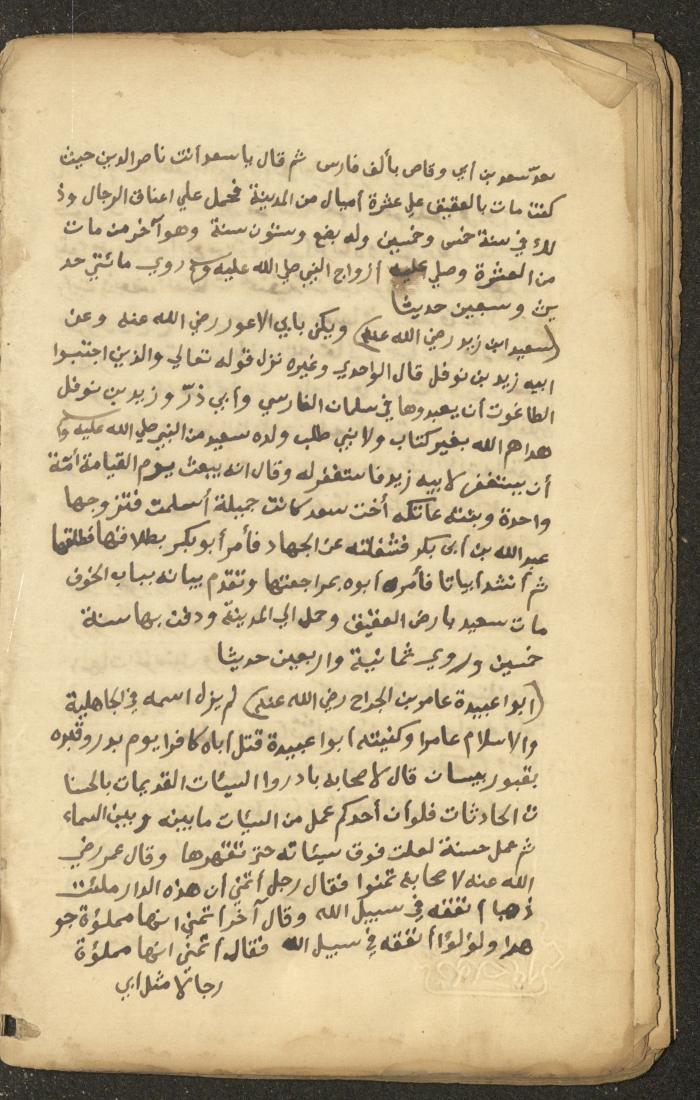 سعد بن أبي وقاص بألف فارس ثم قال يا سعد أنت ناصر الدين حيث
كنت مات بالعقيق علي عشرة أميال من المدينة فحمل علي اعناق الرجال وذ
لك في سنة خمس وخمسين وله بضع وستون سنة وهو آخر من مات
من العشرة وصلي عليه أزواج النبي صلي الله عليه وسلم روي مائتي حد
يث وسبعين حديثا
(سعيد ابن زيد رضي الله عنه) ويكني بابي الاعور رضي الله عنه وعن
ابيه زيد بن نوفل قال الواحدي وغيره نزل قوله تعالي والذين اجتنبوا
الطاغوت أن يعبدوها في سلمان الفارسي وأبي ذرّ وزيد بن نوفل
هداهم الله بغير كتاب ولا نبي طلب ولده سعيد من النبي صلي الله عليه وسلم
أن يستغفر لابيه زيد فاستغفر له وقال انه يبعث يوم القيامة أمّة
واحدة وبنته عاتكه أخت سعد كانت جميلة أسلمت فتزوجها
عبد الله بن أبي بكر فشغلته عن الجهاد فأمر أبو بكر بطلاقها فطلقها
ثم أنشد أبياتا فأمره أبوه بمراجعتها وتقدم بيانه بباب الخوف
مات سعيد بارض العقيق وحمل الي المدينة ودفن بها سنة
خمسين وروي ثمانية واربعين حديثا
(ابوا عبيدة عامر بن الجراح رضي الله عنه) لم يزل اسمه في الجاهلية
والاسلام عامرا وكنيته ابوا عبيدة قتل أباه كافرا يوم بدر وقبره
بقبور بيسان قال لاصحابه بادروا السيئات القديمات بالحسنا
ت الحادثات فلو أن أحدكم عمل من السيئات ما بينه وبين السماء
ثم عمل حسنة لعلت فوق سيئاته حتي تقهرها وقال عمر رضي
الله عنه لاصحابه تمنوا فقال رجل أتمني أن هذه الدار ملئت
ذهبا أنفقه في سبيل الله وقال آخر أتمني انها مملؤة جو
هرا ولؤلؤا أنفقه في سبيل الله فقال أتمني انها مملؤة
رجالا مثل ابي